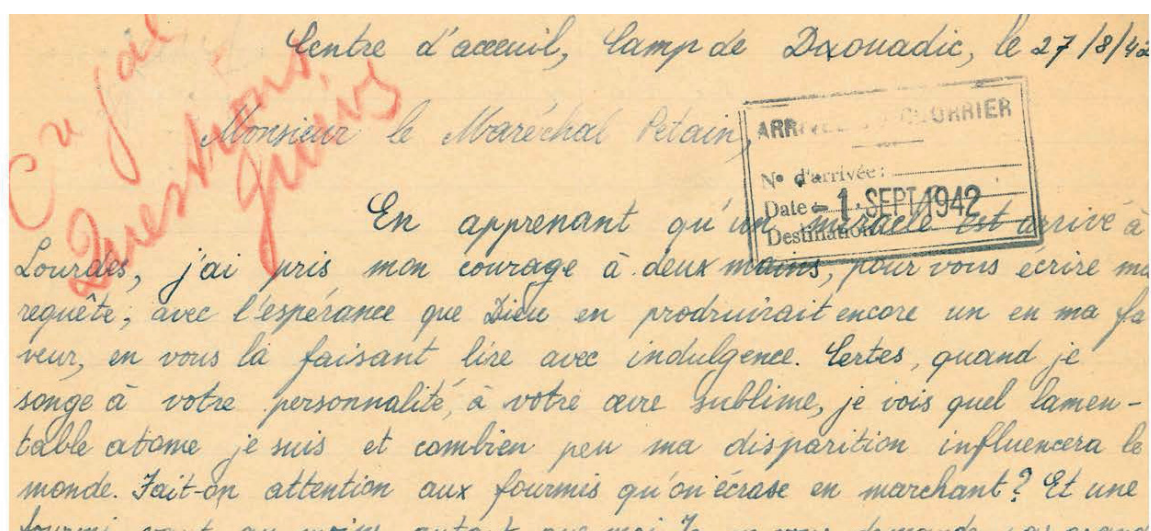 Centre d'acceuil, Camp de Daouadic, le 27/8/42
Cu Gal
Questions
juives
Monsieur le Maréchal Petain,
ARRIVÉE COURRIER
N° d'arrivée :
Date - 1 SEPT 1942
Destination
En apprenant qu'un miracle est arrivé à
Lourdes, j'ai pris mon courage à deux mains, pour vous ecrire ma
requête, avec l'espérance que Dieu en prodruirait encore un en ma fa
veur, en vous la faisant lire avec indulgence. Certes, quand je
songe à votre personnalité, à votre œvre sublime, je vois quel lamen-
table atome je suis et combien peu ma disparition influencera le
monde. Fait-on attention aux fourmis qu'on écrase en marchant? Et une
fourmi vaut au moins autant que moi. Je vous demande